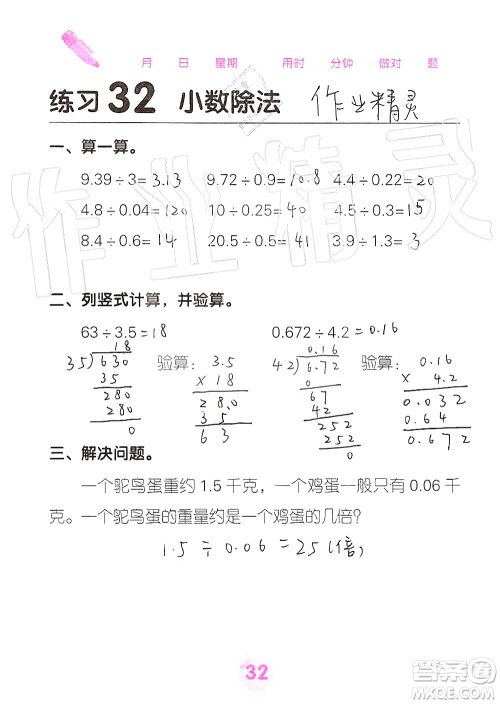 月 日 星期 用时 分钟 做对 题
练习32 小数除法 作业精灵
一、算一算。
9.39÷3=3.13 9.72÷0.9=10.8 4.4÷0.22=20
4.8÷0.04=120 10÷0.25=40 4.5÷0.3=15
8.4÷0.6=14 20.5÷0.5=41 3.9÷1.3=3
二、列竖式计算，并验算。
63÷3.5=18 0.672÷4.2=0.16
18 0.16
35)630 验算： 3.5 42)6.72 验算： 0.16
35 ×18 0 ×4.2
280 280 67 0.032
280 35 42 0.64
0 63 252 0.672
252
0
三、解决问题。
一个鸵鸟蛋重约1.5千克，一个鸡蛋一般只有0.06千
克。一个鸵鸟蛋的重量约是一个鸡蛋的几倍？
1.5÷0.06=25(倍)
32
作业精灵
答案圈
MXQE.COM